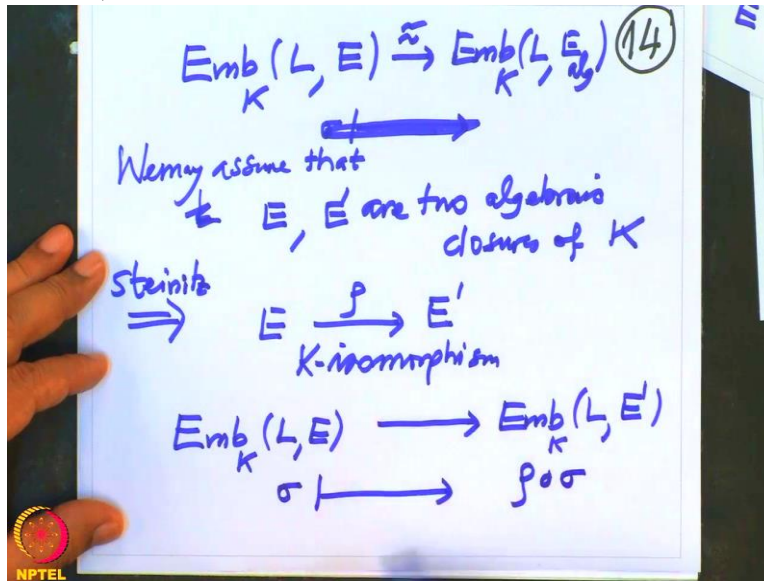 Emb_K (L, E) ⥲ Emb_K (L, E_alg) 14
We may assume that
E, E' are two algebraic
closures of K
Steinitz
⟹ E —ρ→ E'
K-isomorphism
Emb_K (L, E) ⟶ Emb_K (L, E')
σ ⟼ ρ∘σ
NPTEL